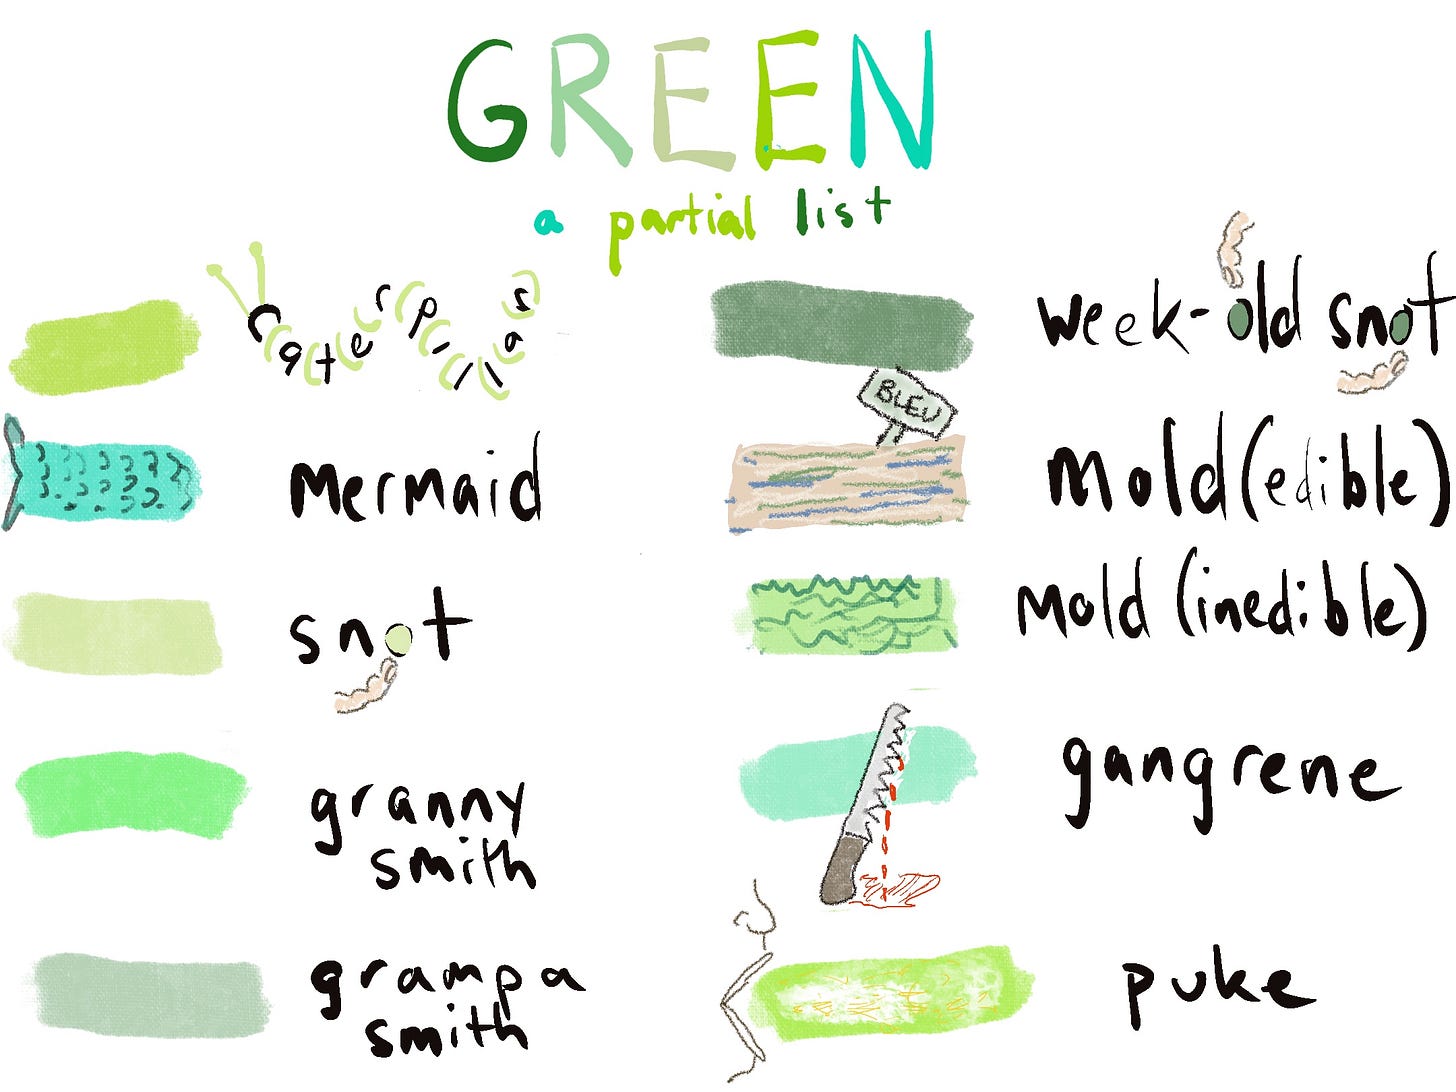 GREEN
a partial list
caterpillar
mermaid
snot
granny
smith
grampa
smith
week-old snot
BLEU
mold (edible)
mold (inedible)
gangrene
puke